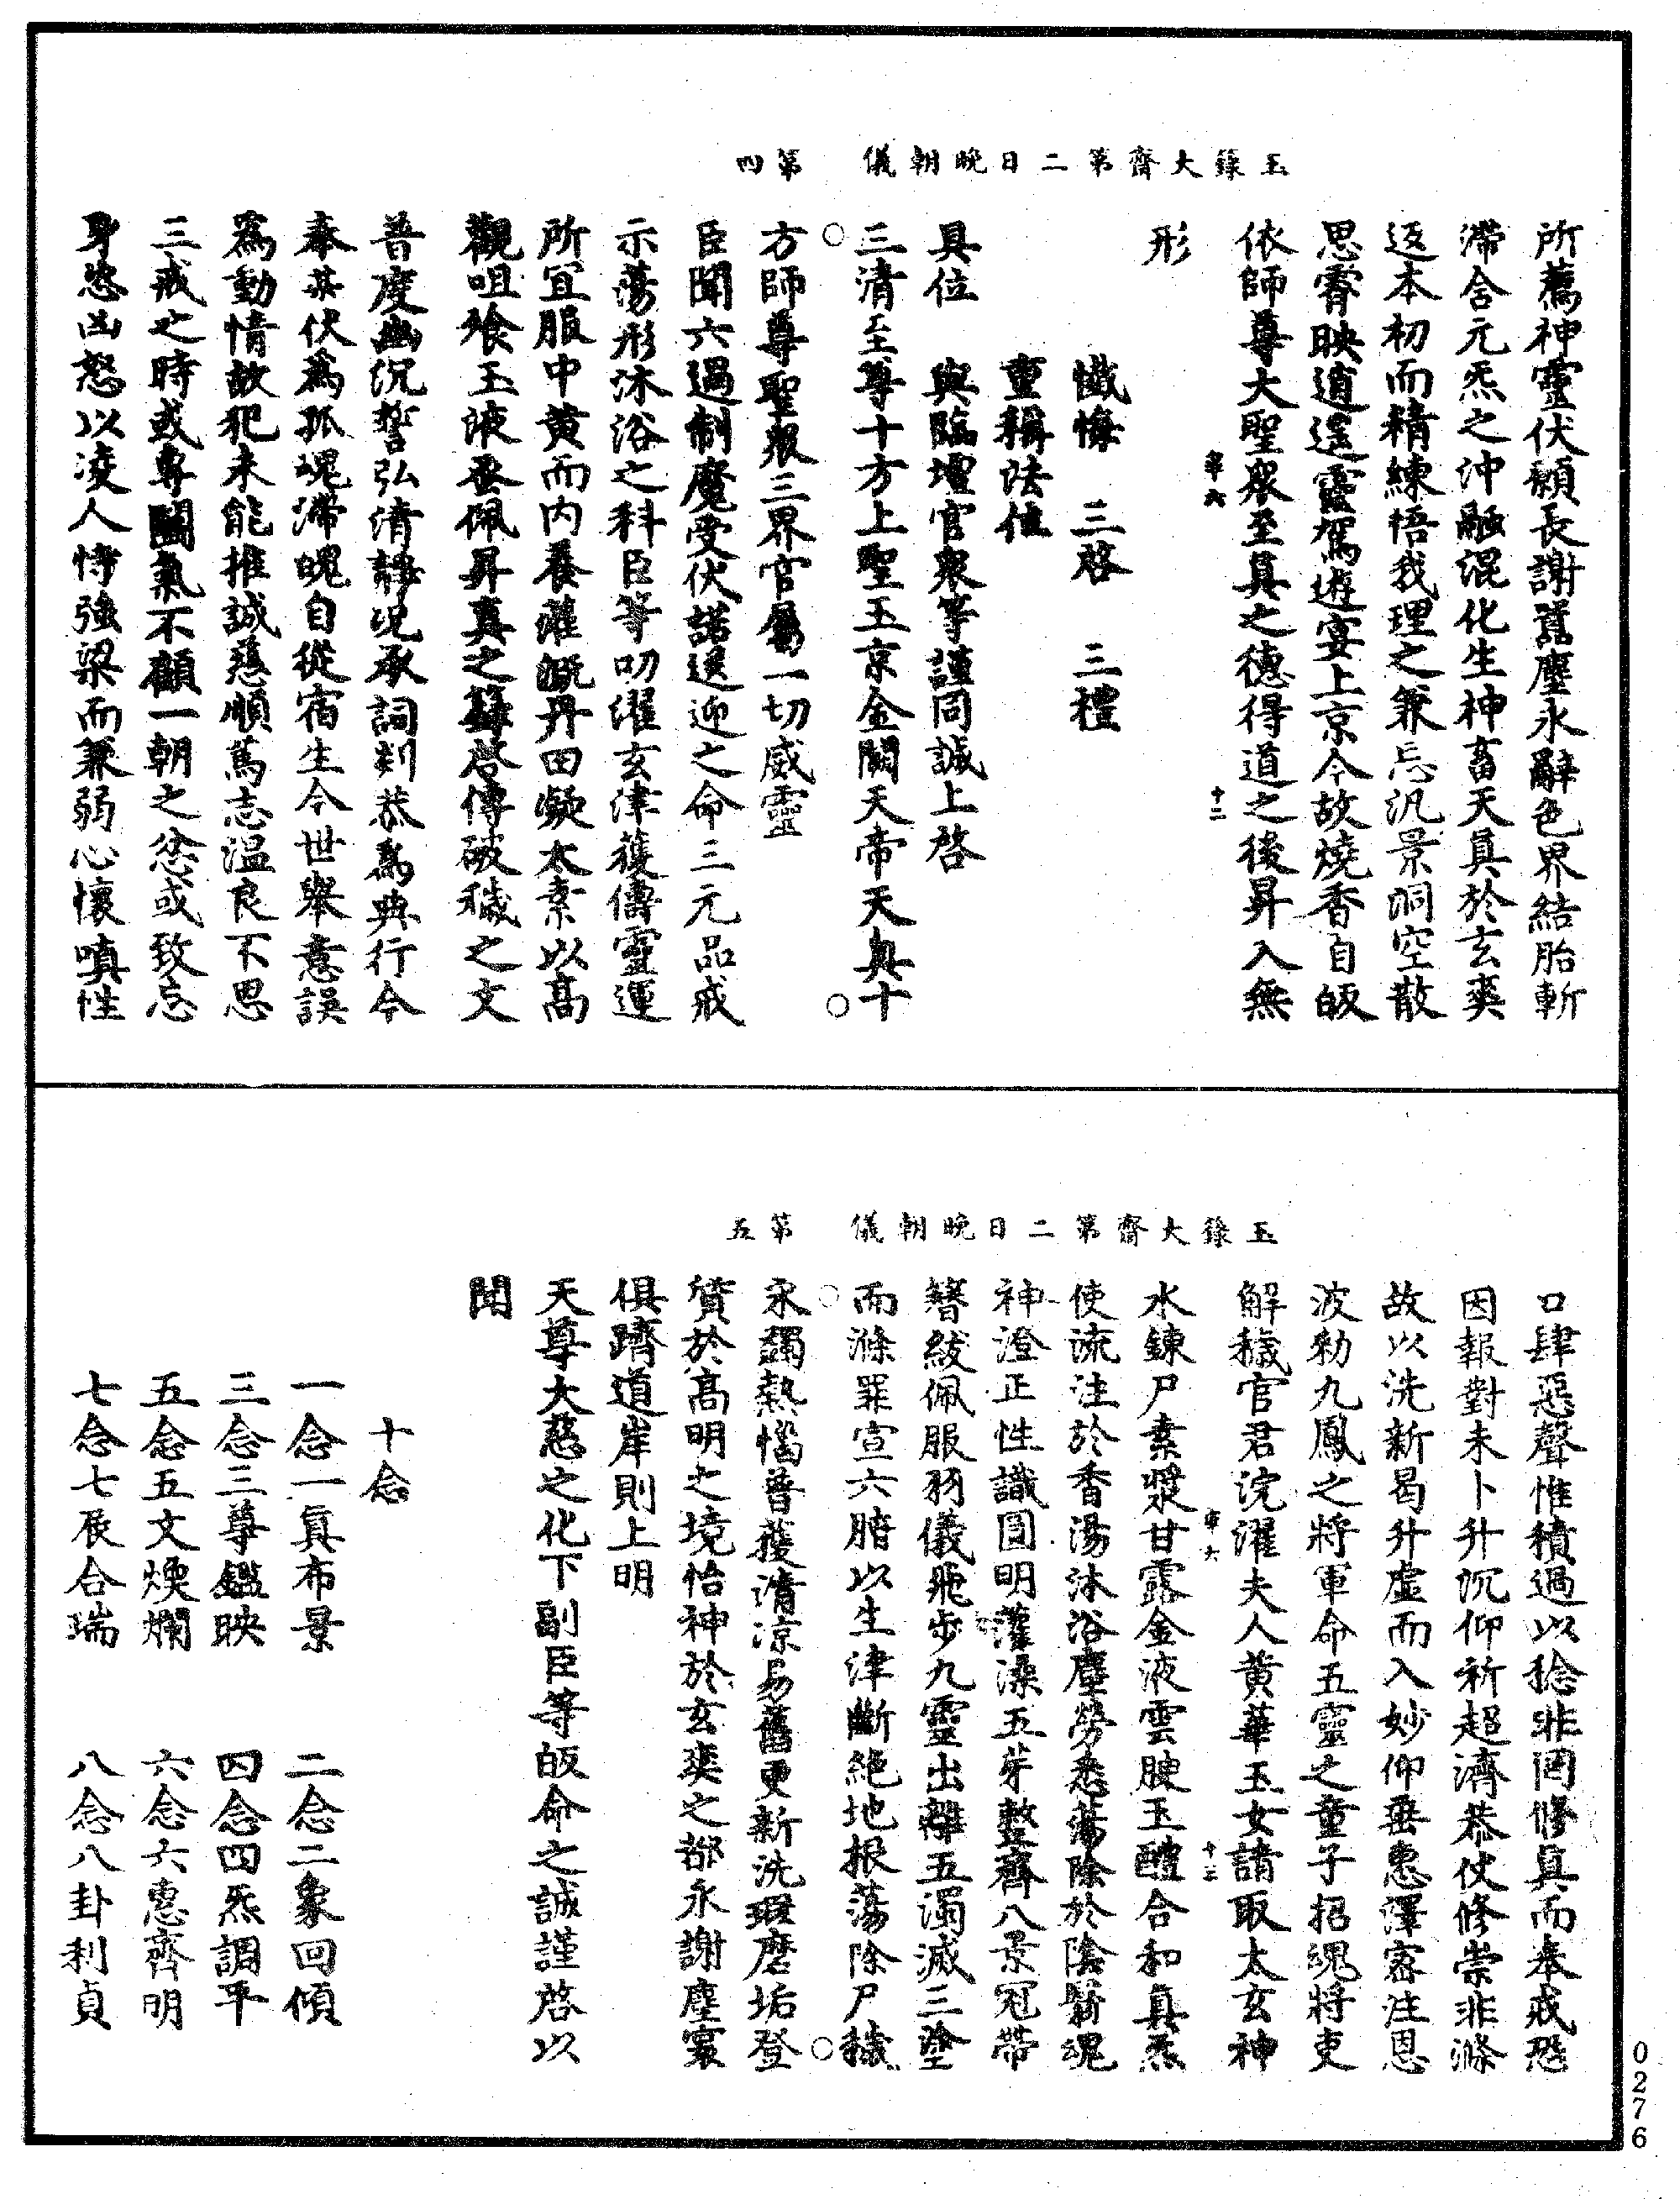 玉籙大齋第二日晚朝儀　第四
所薦神靈伏願長謝囂塵永辭色界結胎斬
滯含元炁之沖融混化生神畜天真於玄奕
返本初而精練悟我理之兼忘汎景洞空散
思霄映逍遥靈駕遊宴上京今故燒香自皈
依師尊大聖衆至真之德得道之後昇入無
章六　十二
形
懺悔　三啓　三禮
重稱法位
具位　與臨壇官衆等謹同誠上啓
三清至尊十方上聖玉京金闕天帝天真十
方師尊聖衆三界官屬一切威靈
臣聞六過制魔受伏諾送迎之命三元品戒
示蕩形沐浴之科臣等叨濯玄津獲儔靈運
所冝服中黄而内養灌溉丹田凝太素以高
觀咀飡玉液蚤佩昇真之籙啓傳破穢之文
普度幽沉誓弘清静况承詞刻恭爲典行今
奉某伏爲孤魂滯魄自從宿生今世舉意誤
爲動情故犯未能推誠慈順篤志温良不思
三戒之時或專鬭氣不顧一朝之忿或致忘
身恣凶怒以凌人恃強梁而兼弱心懷嗔性
玉籙大齋第二日晚朝儀　第五
口肆惡聲惟積過以稔非罔修真而奉戒恐
因報對未卜升沉仰祈超濟恭仗修崇非滌
故以洗新曷升虚而入妙仰垂惠澤密注恩
波勑九鳳之將軍命五靈之童子招魂將吏
解穢官君浣濯夫人黄華玉女請取太玄神
水鍊尸素漿甘露金液雲腴玉醴合和真炁
章六　十三
使流注於香湯沐浴塵勞悉蕩除於陰翳魂
神澄正性識圓明灌溉五芽整齊八景冠帶
簪紱佩服羽儀飛步九靈出離五濁滅三塗
而滌罪宣六腑以生津斷絶地根蕩除尸穢
永蠲熱惱普獲清凉易舊更新洗瑕磨垢登
質於高明之境怡神於玄奕之都永謝塵寰
俱躋道岸則上明
天尊大慈之化下副臣等皈命之誠謹啓以
聞
十念
一念一真布景　二念二象回傾
三念三尊鑑映　四念四炁調平
五念五文煥爛　六念六惠齊明
七念七辰合瑞　八念八卦利貞
0276